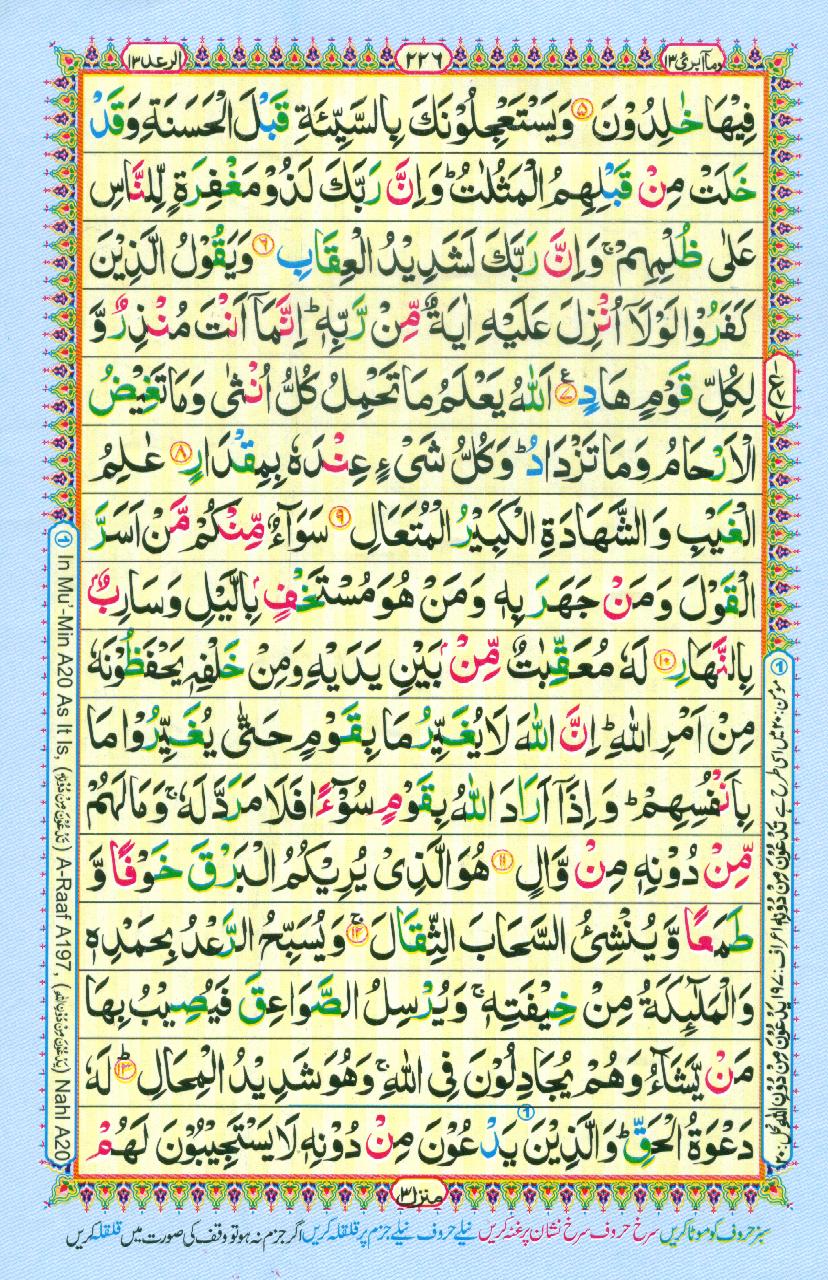 ومآ ابرئ ١٣
٢٢٦
الرعد ١٣
فِيْهَا خٰلِدُوْنَ ۵ وَيَسْتَعْجِلُوْنَكَ بِالسَّيِّئَةِ قَبْلَ الْحَسَنَةِ وَقَدْ
خَلَتْ مِنْ قَبْلِهِمُ الْمَثُلٰتُ ؕ وَاِنَّ رَبَّكَ لَذُوْ مَغْفِرَةٍ لِّلنَّاسِ
عَلٰى ظُلْمِهِمْ ۚ وَاِنَّ رَبَّكَ لَشَدِيْدُ الْعِقَابِ ۶ وَيَقُوْلُ الَّذِيْنَ
كَفَرُوْا لَوْلَاۤ اُنْزِلَ عَلَيْهِ اٰيَةٌ مِّنْ رَّبِّهٖ ؕ اِنَّمَاۤ اَنْتَ مُنْذِرٌ وَّ
لِكُلِّ قَوْمٍ هَادٍ ۷ اَللّٰهُ يَعْلَمُ مَا تَحْمِلُ كُلُّ اُنْثٰى وَمَا تَغِيْضُ
الْاَرْحَامُ وَمَا تَزْدَادُ ؕ وَكُلُّ شَىْءٍ عِنْدَهٗ بِمِقْدَارٍ ۸ عٰلِمُ
الْغَيْبِ وَالشَّهَادَةِ الْكَبِيْرُ الْمُتَعَالِ ۹ سَوَآءٌ مِّنْكُمْ مَّنْ اَسَرَّ
الْقَوْلَ وَمَنْ جَهَرَ بِهٖ وَمَنْ هُوَ مُسْتَخْفٍۭ بِالَّيْلِ وَسَارِبٌۢ
بِالنَّهَارِ ۱۰ لَهٗ مُعَقِّبٰتٌ مِّنْۢ بَيْنِ يَدَيْهِ وَمِنْ خَلْفِهٖ يَحْفَظُوْنَهٗ
مِنْ اَمْرِ اللّٰهِ ؕ اِنَّ اللّٰهَ لَا يُغَيِّرُ مَا بِقَوْمٍ حَتّٰى يُغَيِّرُوْا مَا
بِاَنْفُسِهِمْ ؕ وَاِذَاۤ اَرَادَ اللّٰهُ بِقَوْمٍ سُوْٓءًا فَلَا مَرَدَّ لَهٗ ۚ وَمَا لَهُمْ
مِّنْ دُوْنِهٖ مِنْ وَّالٍ ۱۱ هُوَ الَّذِىْ يُرِيْكُمُ الْبَرْقَ خَوْفًا وَّ
طَمَعًا وَّيُنْشِئُ السَّحَابَ الثِّقَالَ ۱۲ وَيُسَبِّحُ الرَّعْدُ بِحَمْدِهٖ
وَالْمَلٰٓئِكَةُ مِنْ خِيْفَتِهٖ ۚ وَيُرْسِلُ الصَّوَاعِقَ فَيُصِيْبُ بِهَا
مَنْ يَّشَآءُ وَهُمْ يُجَادِلُوْنَ فِى اللّٰهِ ۚ وَهُوَ شَدِيْدُ الْمِحَالِ ۱۳ لَهٗ
دَعْوَةُ الْحَقِّ ؕ وَالَّذِيْنَ يَدْعُوْنَ ① مِنْ دُوْنِهٖ لَا يَسْتَجِيْبُوْنَ لَهُمْ
منزل ٣
① مؤمن: ٢٠ میں اسی طرح ہے تَدْعُوْنَ مِنْ دُوْنِهٖ اعراف: ١٩٧ يَدْعُوْنَ مِنْ دُوْنِ اللّٰهِ نحل: ٢٠
① In Mu'-Min A20 As It Is, (تَدْعُوْنَ مِنْ دُوْنِهٖ) A-Raaf A197, (يَدْعُوْنَ مِنْ دُوْنِ اللّٰهِ) Nahl A20
سبز حروف کو موٹا کریں سرخ حروف سرخ نشان پر غنہ کریں نیلے حروف نیلے جزم پر قلقلہ کریں اگر جزم نہ ہو تو وقف کی صورت میں قلقلہ کریں